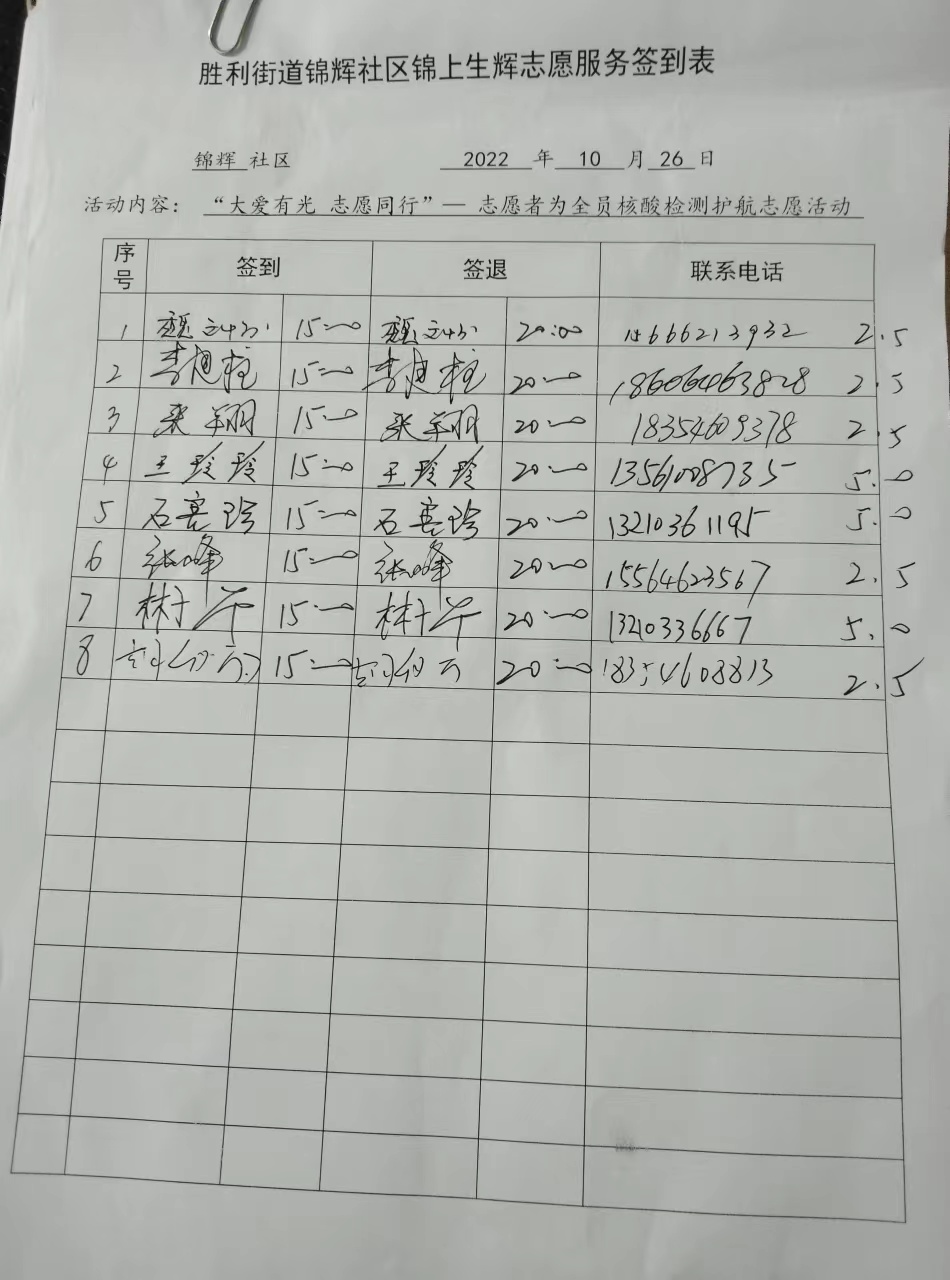 胜利街道锦辉社区锦上生辉志愿服务签到表
锦辉 社区 2022 年 10 月 26 日
活动内容: “大爱有光 志愿同行”— 志愿者为全员核酸检测护航志愿活动
序号 签到 签退 联系电话
1 15:00 20:00 15666213932 2.5
2 15:00 20:00 18606463828 2.5
3 15:00 20:00 18354609378 2.5
4 王玲玲 15:00 王玲玲 20:00 13561008735 5.0
5 石 15:00 石 20:00 13210361195 5.0
6 张峰 15:00 张峰 20:00 15564623567 2.5
7 林 15:00 林 20:00 13210336667 5.0
8 15:00 20:00 18354608813 2.5